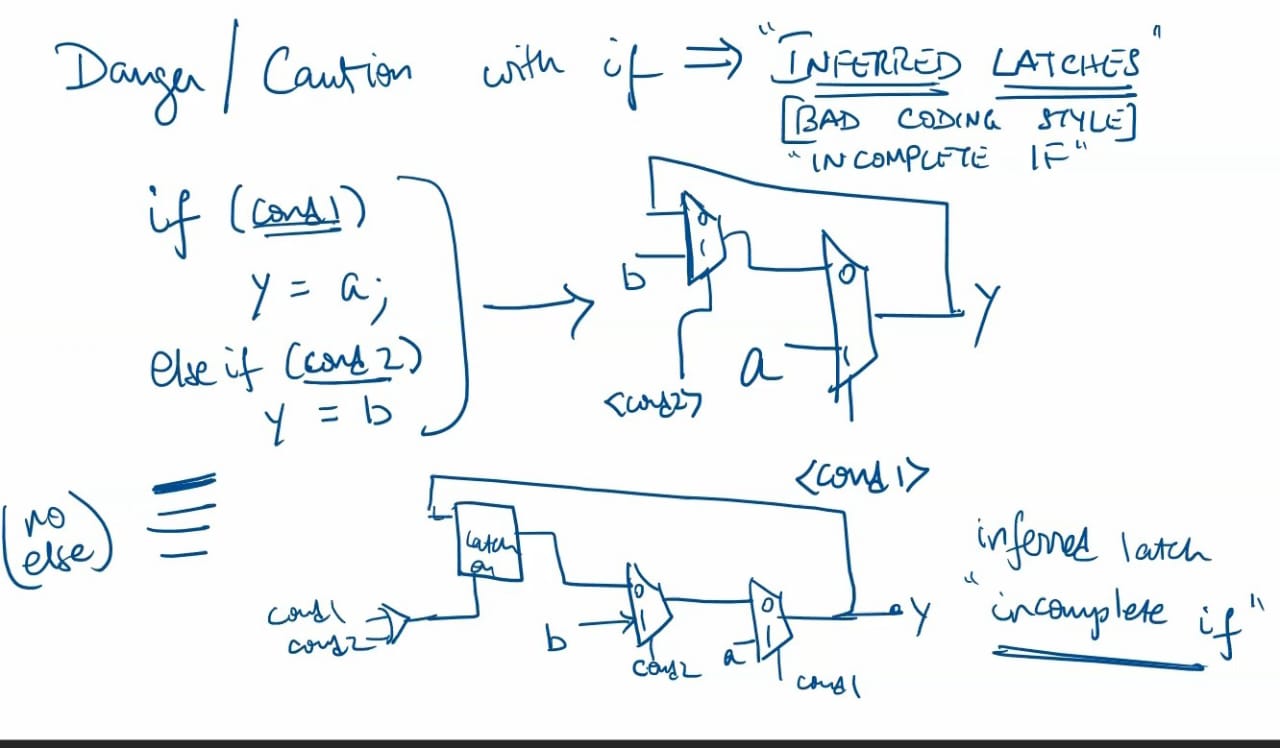 Danger / Caution with if ⇒ "INFERRED LATCHES"
[BAD CODING STYLE]
"INCOMPLETE IF"
if (cond1)
y = a;
else if (cond2)
y = b
(no else)
0
1
b
<cond2>
0
1
a
<cond1>
y
latch
en
cond1
cond2
0
1
b
cond2
0
1
a
cond1
y
inferred latch
"incomplete if"